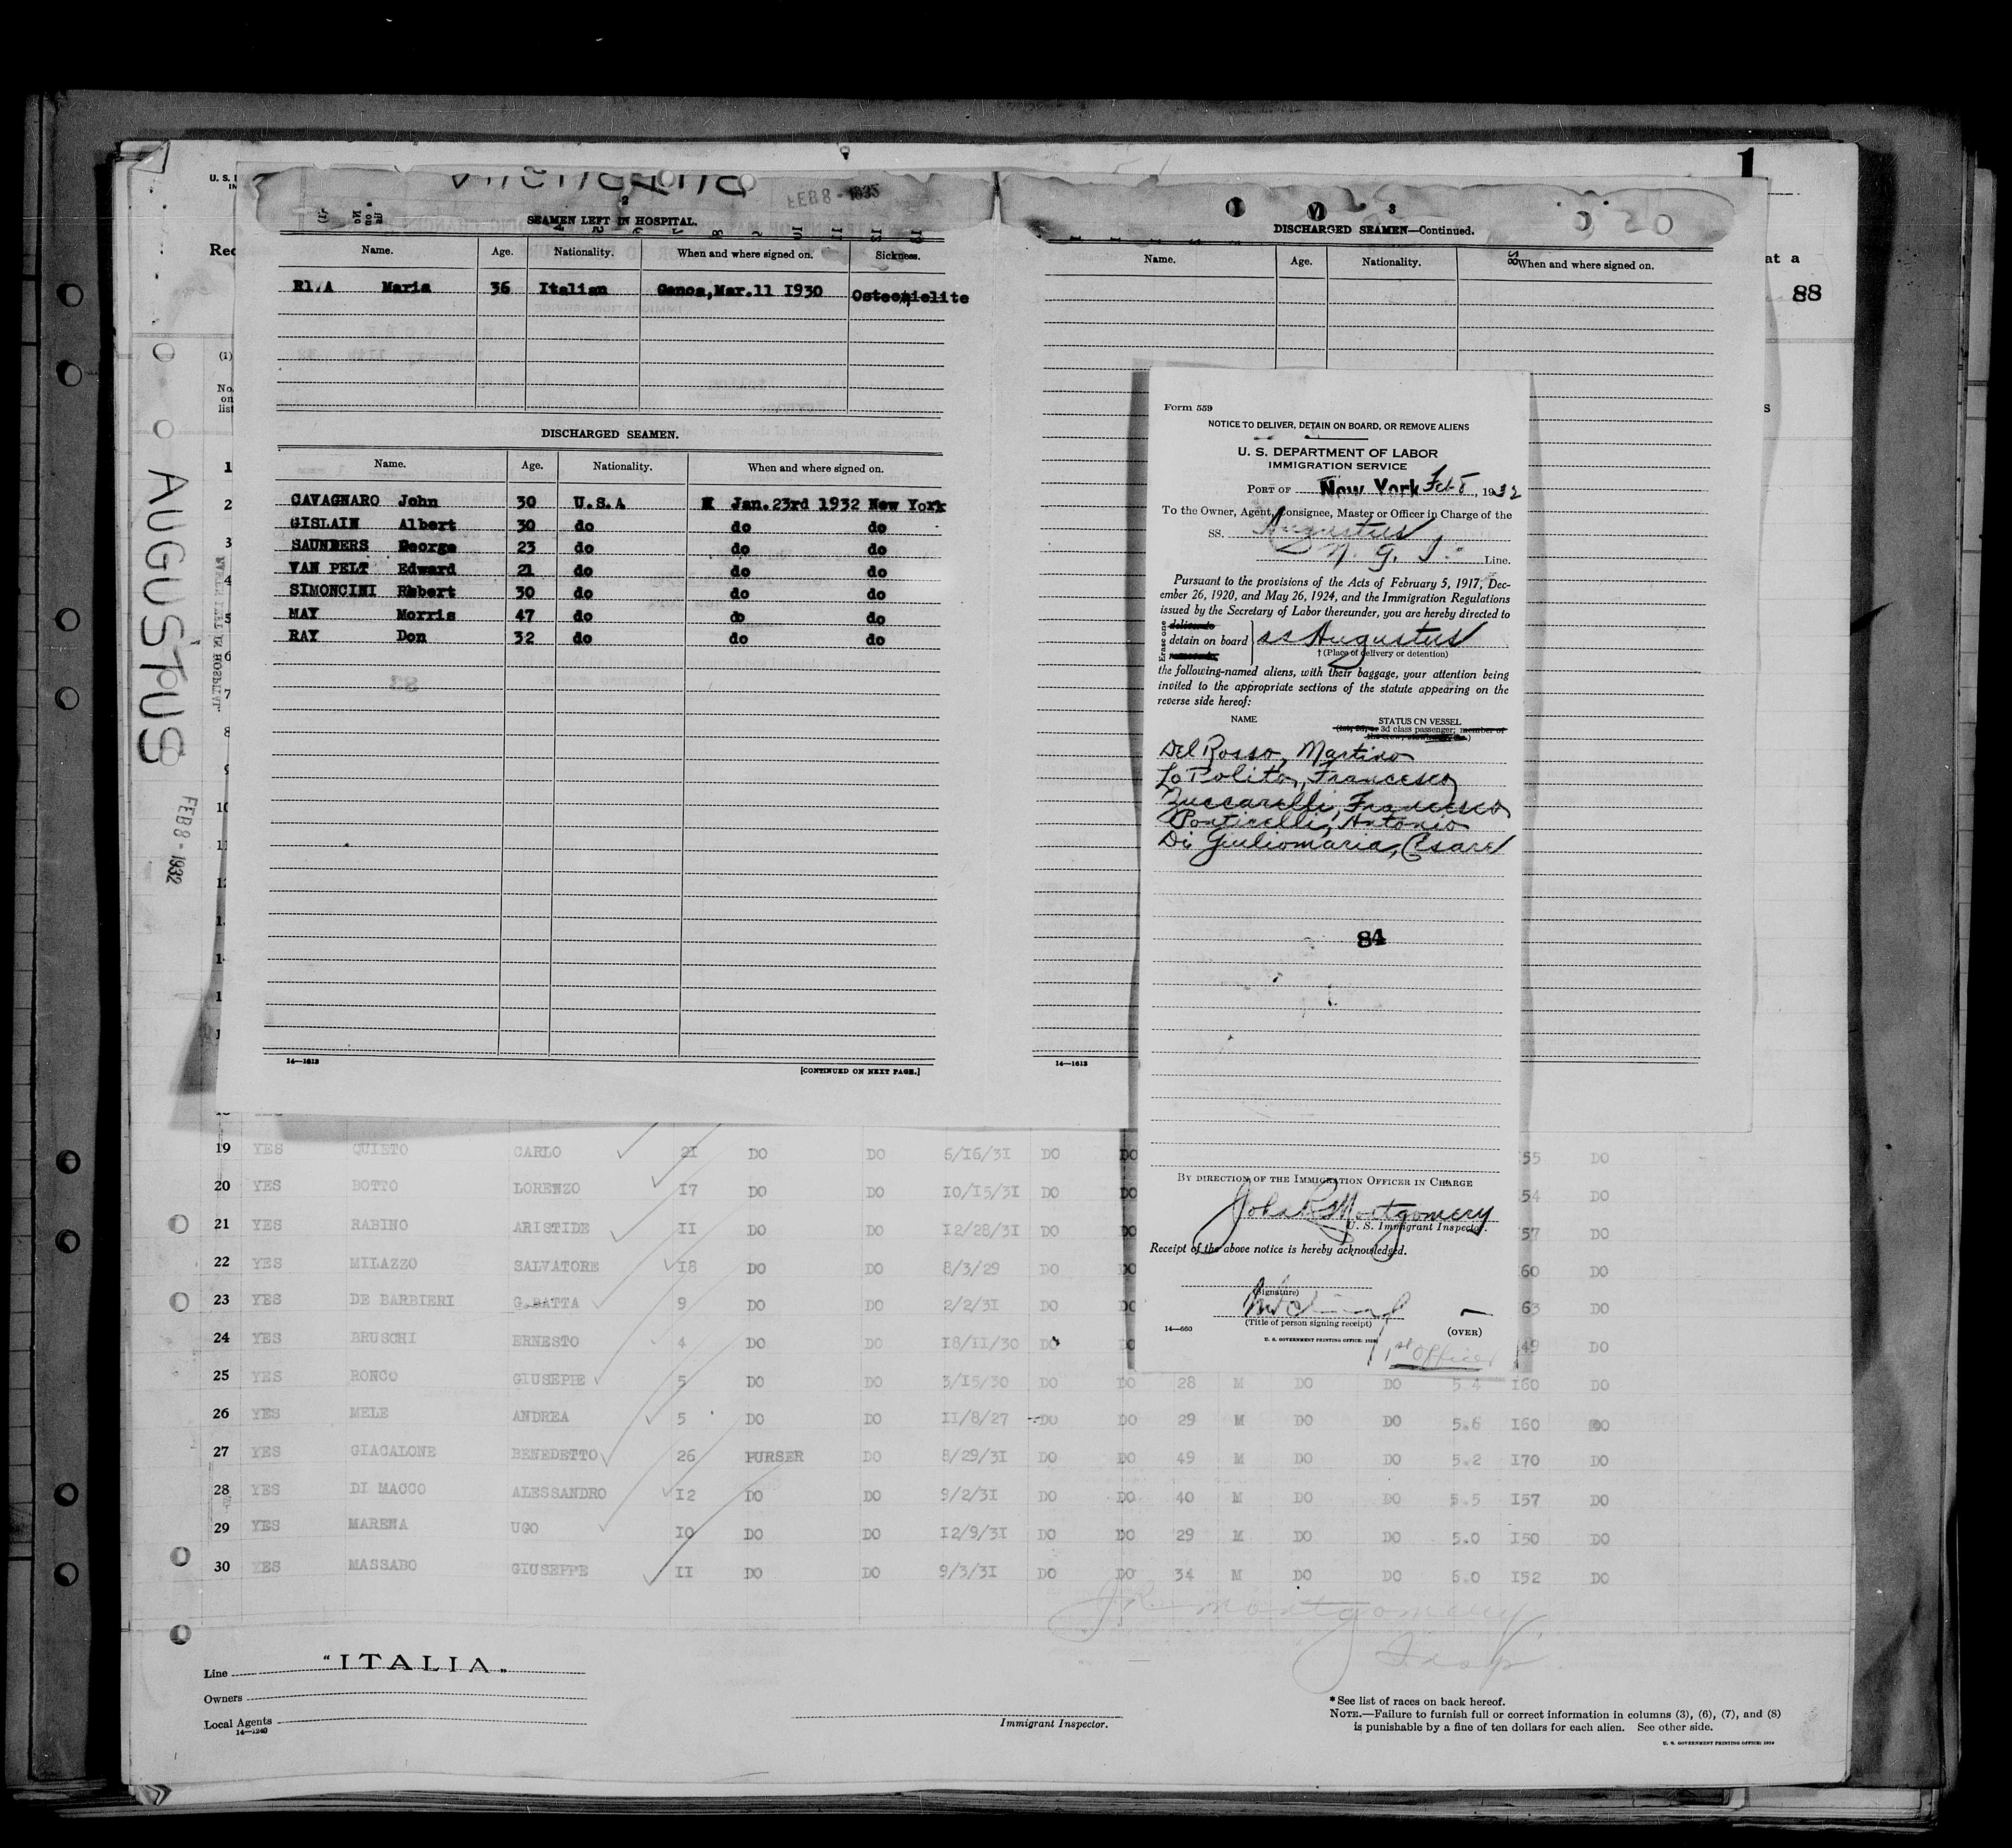 1
88
at a
U. S.
Rec
(1)
No.
on
list
AUGUSTUS
FEB 8 - 1932
FEB 8 - 1932
2
SEAMEN LEFT IN HOSPITAL.
Name. Age. Nationality. When and where signed on. Sickness.
Maria 36 Italian Genoa,Mar.11 1930
DISCHARGED SEAMEN.
Name. Age. Nationality. When and where signed on.
CAVAGNARO John 30 U.S.A Jan.23rd 1932 New York
GISLAIN Albert 30 do do do
SAUNDERS George 23 do do do
VAN PELT Edward 21 do do do
SIMONCINI Robert 30 do do do
MAY Morris 47 do do do
RAY Don 32 do do do
14—1613
[CONTINUED ON NEXT PAGE.]
3
DISCHARGED SEAMEN—Continued.
Name. Age. Nationality. When and where signed on.
14—1613
Form 559
NOTICE TO DELIVER, DETAIN ON BOARD, OR REMOVE ALIENS
U. S. DEPARTMENT OF LABOR
IMMIGRATION SERVICE
PORT OF New York Feb 8, 1932
To the Owner, Agent, Consignee, Master or Officer in Charge of the
SS. Augustus
N. G. I. Line.
Pursuant to the provisions of the Acts of February 5, 1917, Dec-
ember 26, 1920, and May 26, 1924, and the Immigration Regulations
issued by the Secretary of Labor thereunder, you are hereby directed to
Erase one
detain on board ss Augustus
† (Place of delivery or detention)
the following-named aliens, with their baggage, your attention being
invited to the appropriate sections of the statute appearing on the
reverse side hereof:
NAME STATUS ON VESSEL
(1st, 2d, or 3d class passenger; member of
Del Rosso, Martino
Lo Polito, Francesco
Zuccarelli, Francesco
Ponticelli, Antonio
Di Giuliomaria, Cesare
84
BY DIRECTION OF THE IMMIGRATION OFFICER IN CHARGE
John R Montgomery
U. S. Immigrant Inspector.
Receipt of the above notice is hereby acknowledged.
(Signature)
(Title of person signing receipt)
14—660
(OVER)
U. S. GOVERNMENT PRINTING OFFICE: 1929
1st Officer
19 YES QUIETO CARLO 21 DO DO 5/16/31 DO DO 55 DO
20 YES BOTTO LORENZO 17 DO DO 10/15/31 DO DO 54 DO
21 YES RABINO ARISTIDE II DO DO 12/28/31 DO DO 57 DO
22 YES MILAZZO SALVATORE 18 DO DO 8/3/29 DO DO 60 DO
23 YES DE BARBIERI G.BATTA 9 DO DO 2/2/31 DO DO 63 DO
24 YES BRUSCHI ERNESTO 4 DO DO 18/11/30 DO DO 49 DO
25 YES RONCO GIUSEPPE 5 DO DO 3/15/30 DO DO 28 M DO DO 5.4 160 DO
26 YES MELE ANDREA 5 DO DO 11/8/27 DO DO 29 M DO DO 5.6 160 DO
27 YES GIACALONE BENEDETTO 26 PURSER DO 8/29/31 DO DO 49 M DO DO 5.2 170 DO
28 YES DI MACCO ALESSANDRO 12 DO DO 9/2/31 DO DO 40 M DO DO 5.5 157 DO
29 YES MARENA UGO 10 DO DO 12/9/31 DO DO 29 M DO DO 5.0 150 DO
30 YES MASSABO GIUSEPPE II DO DO 9/3/31 DO DO 34 M DO DO 6.0 152 DO
J R Montgomery
Insp
Line "ITALIA"
Owners
Local Agents
14—1240
Immigrant Inspector.
* See list of races on back hereof.
NOTE.—Failure to furnish full or correct information in columns (3), (6), (7), and (8)
is punishable by a fine of ten dollars for each alien. See other side.
U. S. GOVERNMENT PRINTING OFFICE: 1929